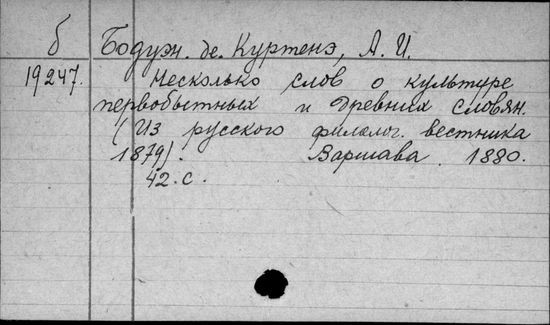 б Бодуэн. де. Куртенэ, А. И.
19247. Несколько слов о культуре
первобытных и древних словян.
(Из русского филолог. вестника
1879). Варшава. 1880.
42. с.